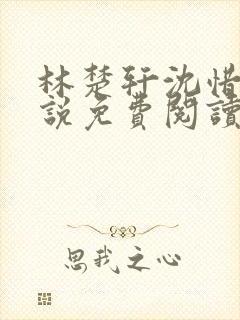 林楚轩沈惜
說免費閱讀
思我之心